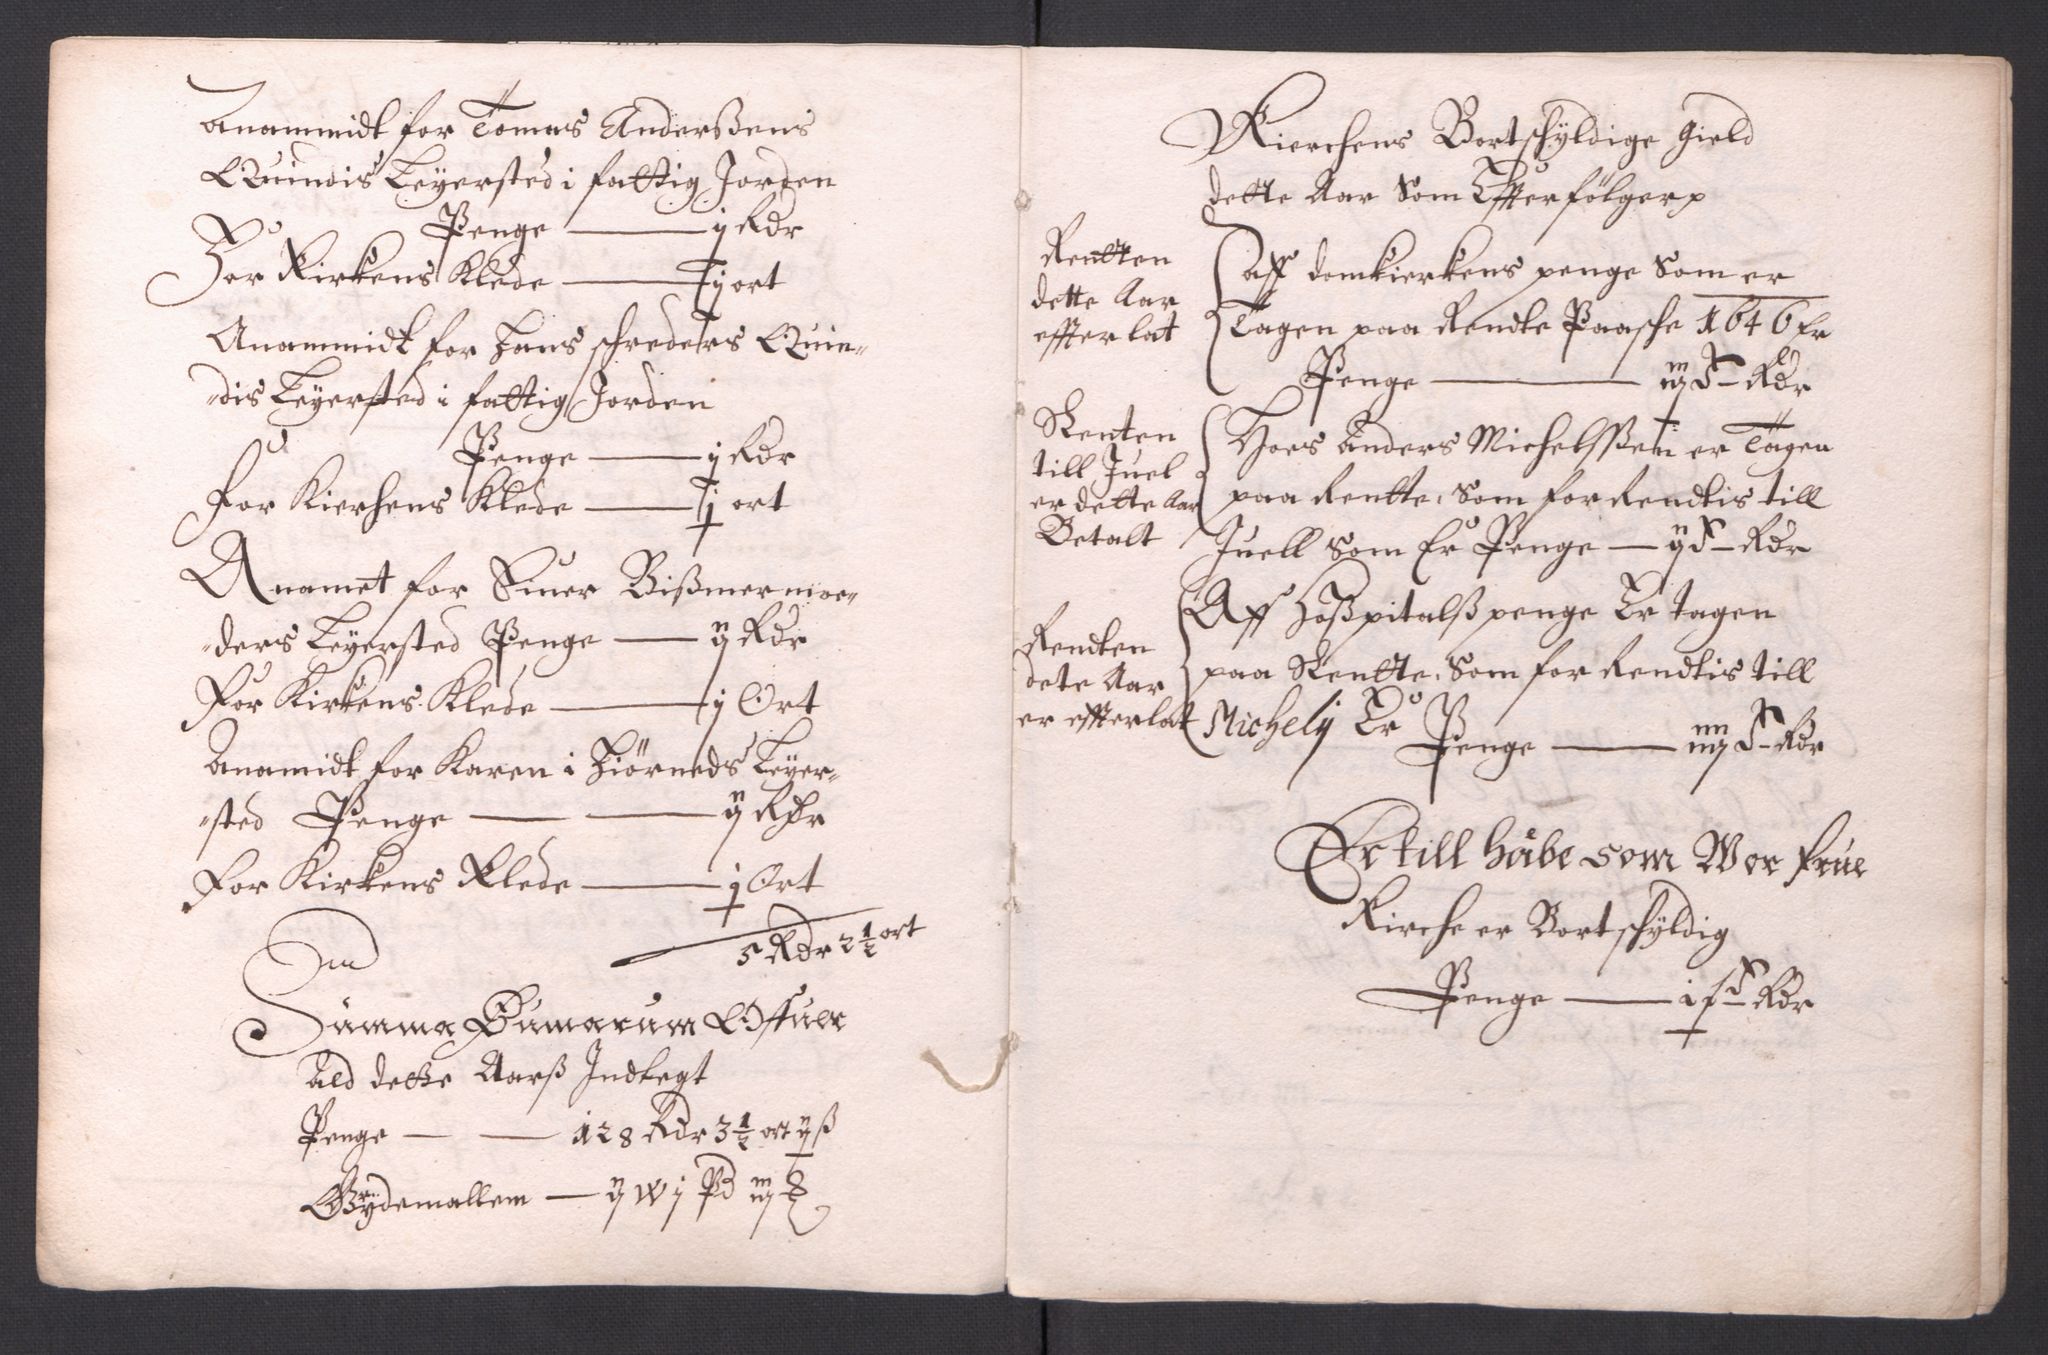 Anammidt for Tomas Anderßens
Quindis Leyersted i fattig Jorden
Penge — j Rdr
For Kirkens Klede — ½ ort
Anammidt for Hans schreders Quin„
„dis Leyersted i fattig Jorden
Penge — j Rdr
For Kierchens Klede — ½ ort
Anamet for Siuer Bißmermoe„
„ders Leyersted Penge — ij Rdr
For Kirkens Klede — j Ort
Anamidt for Karen i Hiørneds Leyer„
„sted Penge — ij Rdr
For Kirkens Klede — j Ort
5 Rdr 2½ ort
Summa Sumarum Offuer
Ald dette Aarß Indtegt
Penge — 128 Rdr 3½ ort ij ß
— ij W j Pd iiij
Kierchens Bortschyldige gield
dette Aar Som Effterfølger
Rentten
dette Aar
effterlat
aff domkierkens penge Som er
Tagen paa Rendte Paasche 1646 Er
Penge — Rdr
Renten
till Juel
er dette Aar
Betalt
Hoes Anders Michelsßen er Tagen
paa Rentte, Som for Rendtis till
Juell som Er Penge — Rdr
Rendten
dete Aar
er effterlat
Aff Hoßpitalß penge Er tagen
paa Rentte, Som for Rendtis till
Michelij Er Penge — Rdr
Er till håbe som Wor frue
Kirche er Bortschyldig
Penge — Rdr